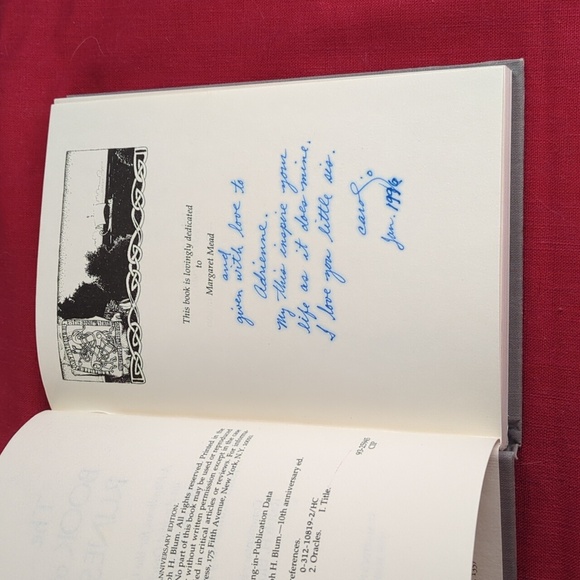 This book is lovingly dedicated
to
Margaret Mead
and
given with love to
Adrienne.
My this inspire your
life as it does mine.
I love you little sis.
Carol
Jan. 1996
ANNIVERSARY EDITION.
ph H. Blum. All rights reserved. Printed in the
No part of this book may be used or reproduced
r without written permission except in the case
ed in critical articles or reviews. For informa
ess, 175 Fifth Avenue, New York, N.Y. 10010.
ng-in-Publication Data
ph H. Blum.—10th anniversary ed.
references.
0-312-10819-2/HC
2. Oracles. I. Title.
CIP